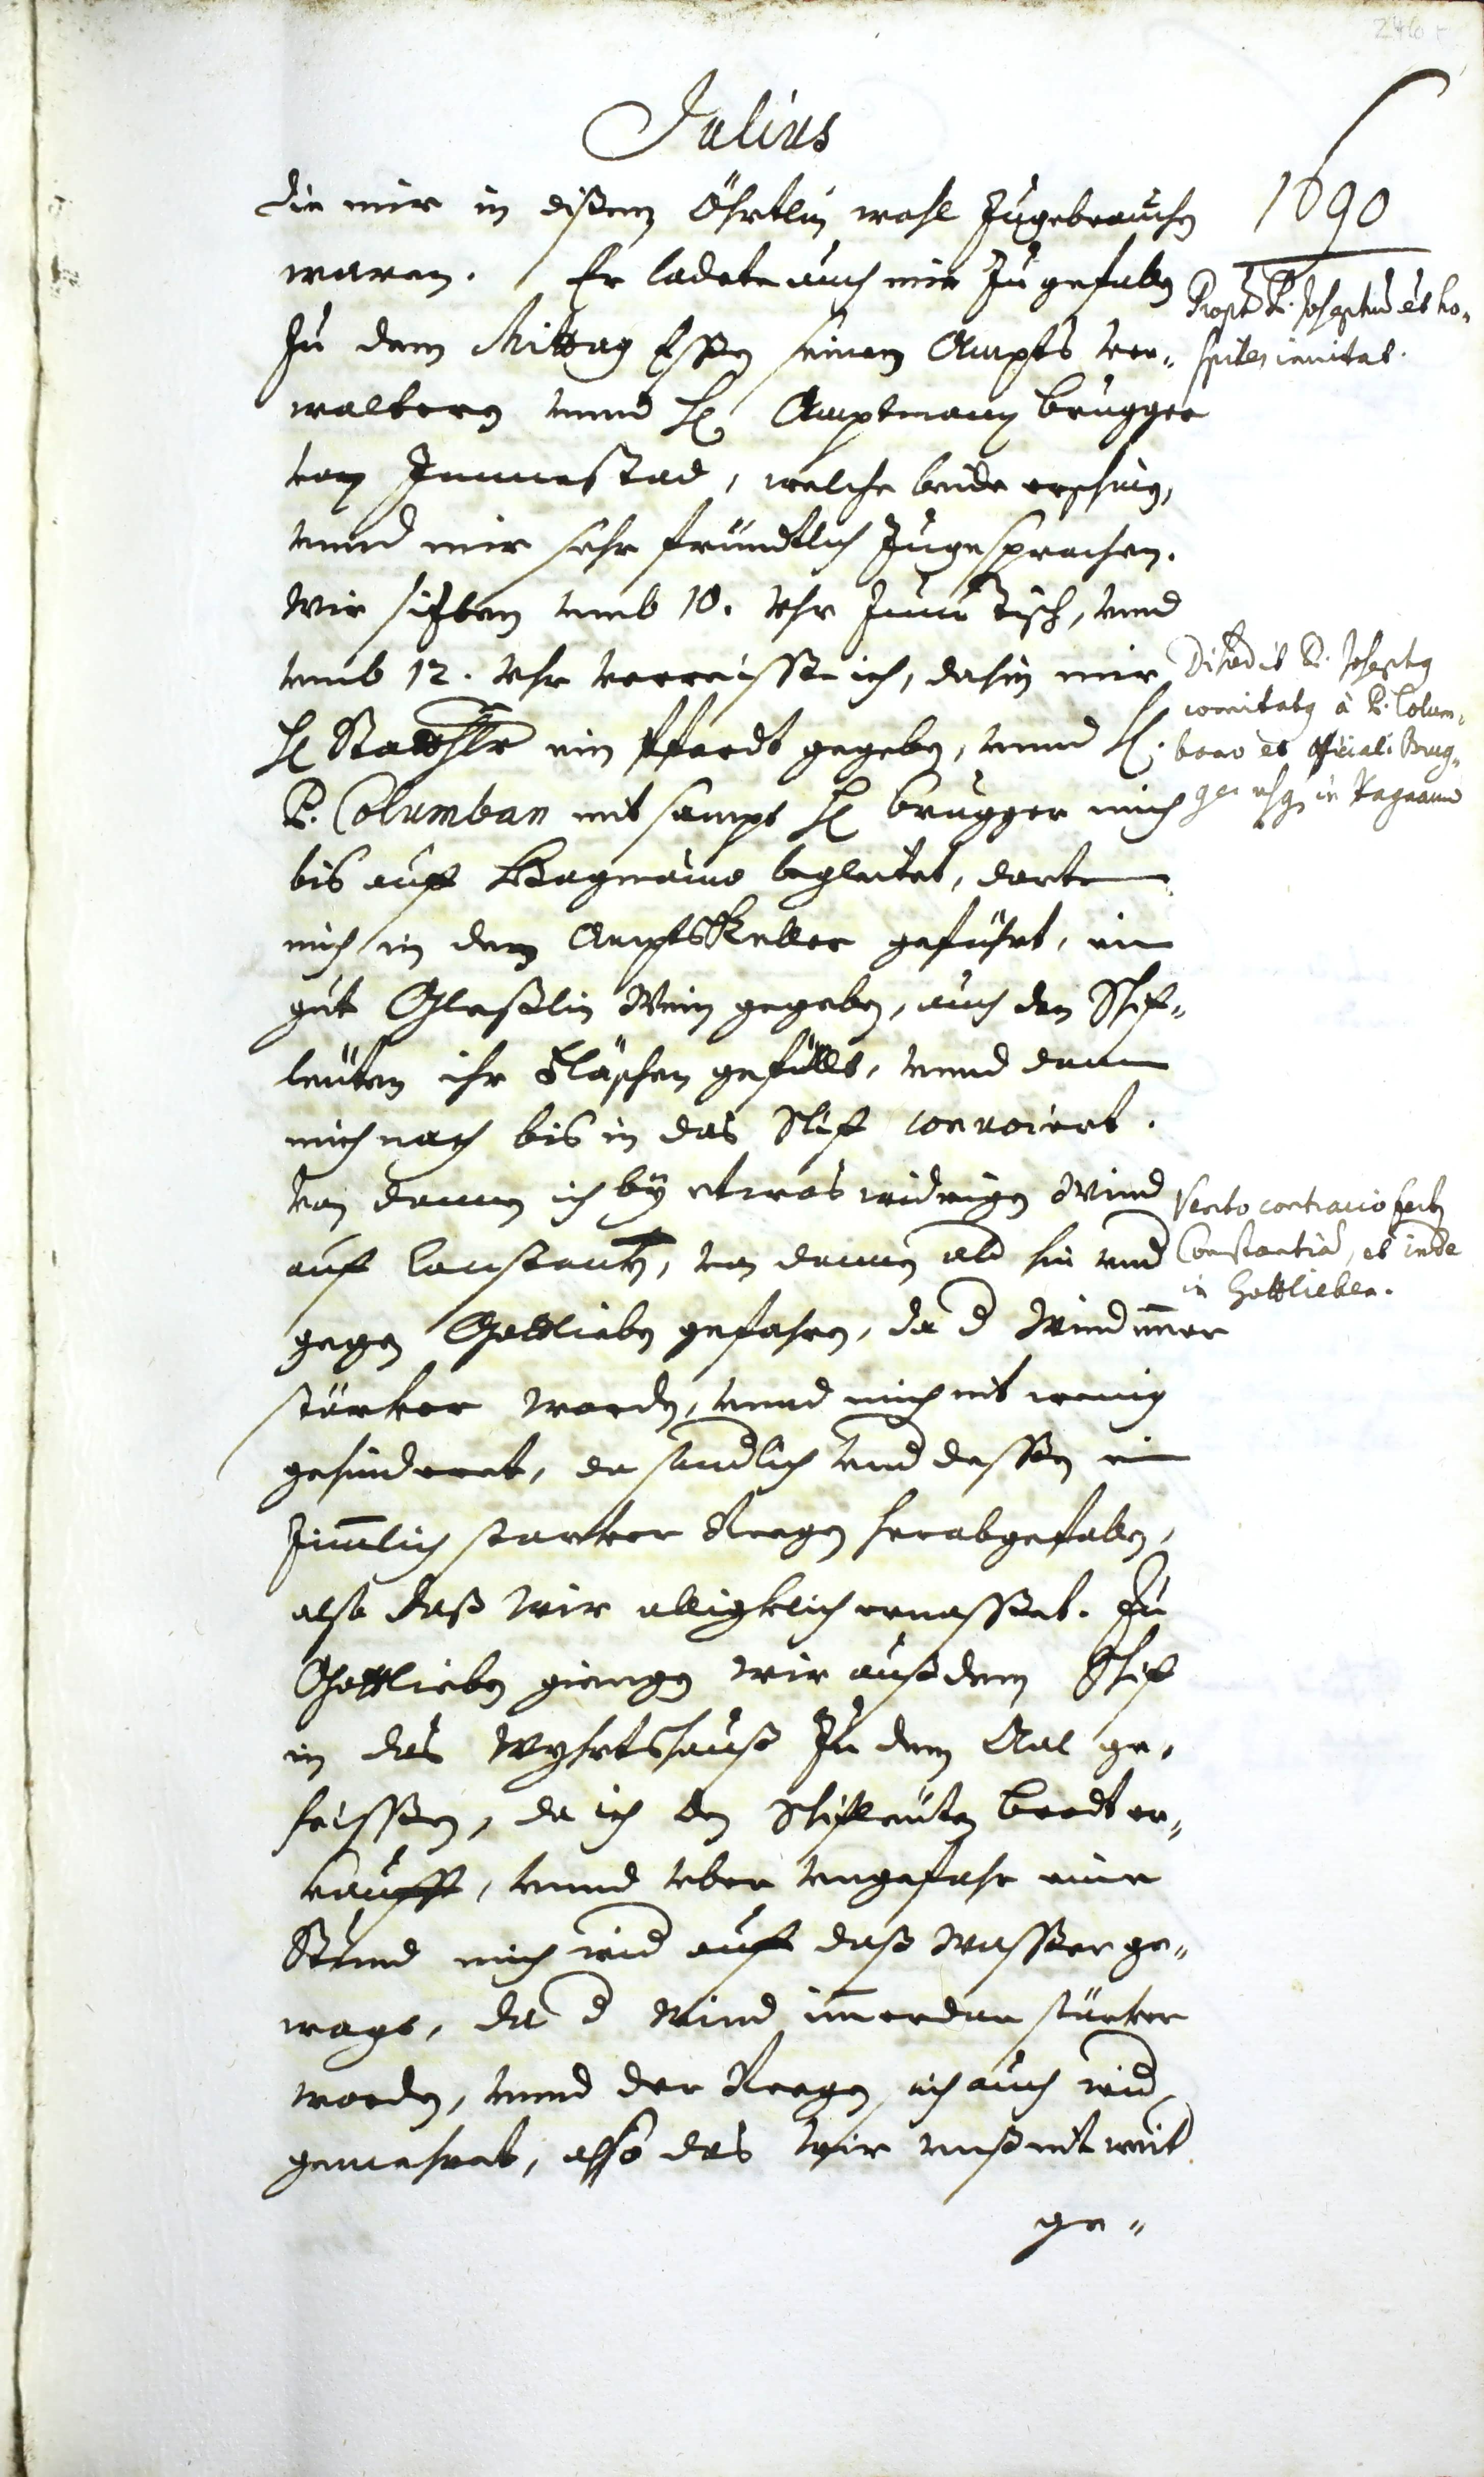 246 r
Julius
1690
die mir in dißem Öhrtlin wohl zugebrauchen
waren. Er ladete auch mir zu gefallen
zu dem Mittag Eßen seinen Ampts ver-
waltern unnd H. Amptmann Brugger
von Immestad, welche beide erschinen,
unnd mir sehr fründtlich zugesprachen.
Wir sitzten umb 10. Uhr zum Tisch, und
umb 12. Uhr verreißte ich, dahin mir
H. Statthlr ein Pferdt gegeben, unnd H.
P. Columban mit sampt H. Brugger mich
bis auff begleitet, dorten
mich in den Ampts Keller geführt, ein
gut Gleßlin Wein gegeben, auch den Schif-
leüten ihr Fläschen gefüllt, unnd dann
mich nach bis in das Schif convoiert.
Von dannen ich by etwas widrigen Wind
auf Constantz, von dannen alß hin und
gegen Gottlieben gefahren, da d Wind imer
stärker worden, unnd mich nit wenig
gehinderet, da endlich und dessen ein
zimlich starker Regen herabgefallen,
also daß wir alligklich ernasset. Zu
Gottlieben giengen wir auß dem Schif
in das Wyhrtshauß zu dem Aal ge-
heissen, da ich den Schifleüten Brodt er-
kaufft, unnd uber ungefahr eine
Stund mich wid auf daß Wasser ge-
wagt, da d Wind imerdar stärker
worden, unnd der Regen sich auch wid
gemehret, also das wir unß nit weit
ge-
Propt P. Josephum et ho-
spites invitat.
Discedit P. Josephus
comitatus à P. Colum-
bano et officiali Brug-
ger usque in
Vento contrario fertur
Constantiam, et inde
in Gottlieben.